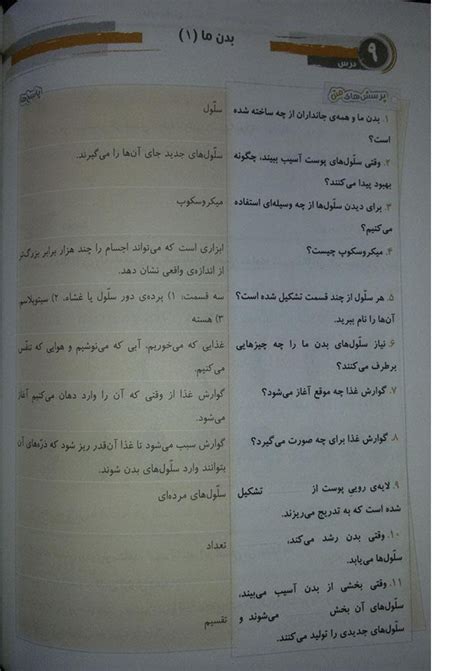 ۹
درس
بدن ما (۱)
پرسش‌های متن
پاسخ‌ها
۱. بدن ما و همه‌ی جانداران از چه ساخته شده
است؟
سلّول
۲. وقتی سلّول‌های پوست آسیب ببیند، چگونه
بهبود پیدا می‌کنند؟
سلّول‌های جدید جای آن‌ها را می‌گیرند.
۳. برای دیدن سلّول‌ها از چه وسیله‌ای استفاده
می‌کنیم؟
میکروسکوپ
۴. میکروسکوپ چیست؟
ابزاری است که می‌تواند اجسام را چند هزار برابر بزرگ‌تر
از اندازه‌ی واقعی نشان دهد.
۵. هر سلّول از چند قسمت تشکیل شده است؟
آن‌ها را نام ببرید.
سه قسمت: ۱) پرده‌ی دور سلّول یا غشاء، ۲) سیتوپلاسم
۳) هسته
۶. نیاز سلّول‌های بدن ما را چه چیزهایی
برطرف می‌کنند؟
غذایی که می‌خوریم، آبی که می‌نوشیم و هوایی که تنفّس
می‌کنیم.
۷. گوارش غذا چه موقع آغاز می‌شود؟
گوارش غذا از وقتی که آن را وارد دهان می‌کنیم آغاز
می‌شود.
۸. گوارش غذا برای چه صورت می‌گیرد؟
گوارش سبب می‌شود تا غذا آن‌قدر ریز شود که ذرّه‌های آن
بتوانند وارد سلّول‌های بدن شوند.
۹. لایه‌ی روییِ پوست از تشکیل
شده است که به تدریج می‌ریزند.
سلّول‌های مرده‌ای
۱۰. وقتی بدن رشد می‌کند،
سلّول‌ها می‌یابد.
تعداد
۱۱. وقتی بخشی از بدن آسیب می‌بیند،
سلّول‌های آن بخش می‌شوند و
سلّول‌های جدیدی را تولید می‌کنند.
تقسیم